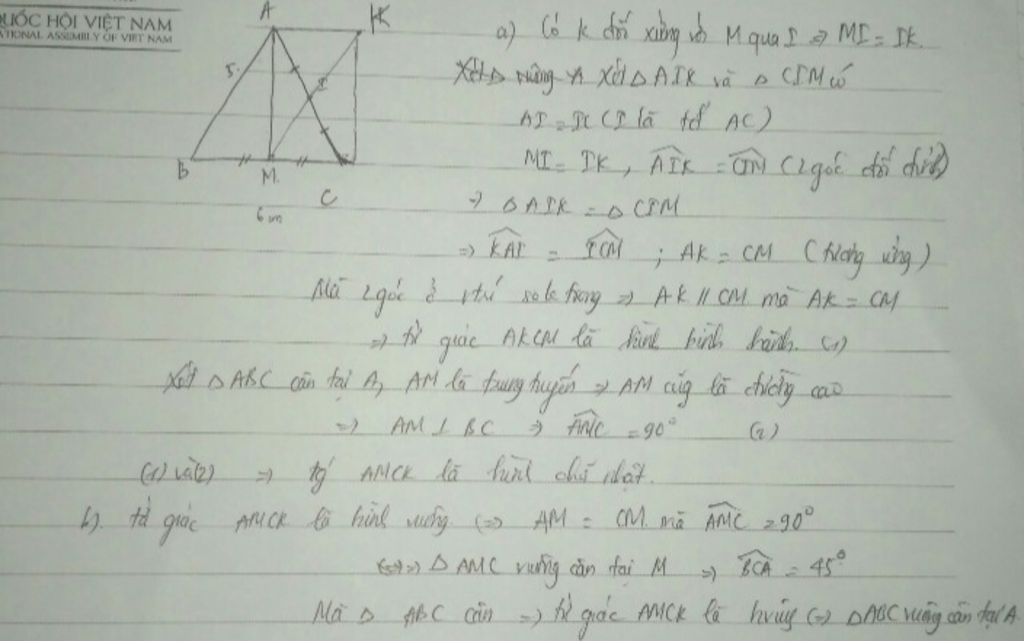 QUỐC HỘI VIỆT NAM
NATIONAL ASSEMBLY OF VIET NAM
A K
5 I
B M C
6 cm
a) Có K đối xứng với M qua I => MI = IK.
Xét Δ AIK và Δ CIM có
AI = IC (I là tđ AC)
MI = IK, AIK = CIM (2 góc đối đỉnh)
=> Δ AIK = Δ CIM
=> KAI = ICM ; AK = CM (tương ứng)
Mà 2 góc ở vtrí so le trong => AK // CM mà AK = CM
=> tứ giác AKCM là hình bình hành. (1)
Xét Δ ABC cân tại A, AM là trung tuyến => AM cũg là đường cao
=> AM ⊥ BC => AMC = 90° (2)
(1) và (2) => tg AMCK là hình chữ nhật.
b). tứ giác AMCK là hình vuông (=> AM = CM mà AMC = 90°
=> Δ AMC vuông cân tại M => BCA = 45°
Mà Δ ABC cân => tứ giác AMCK là hvuôg (=> ΔABC vuông cân tại A.